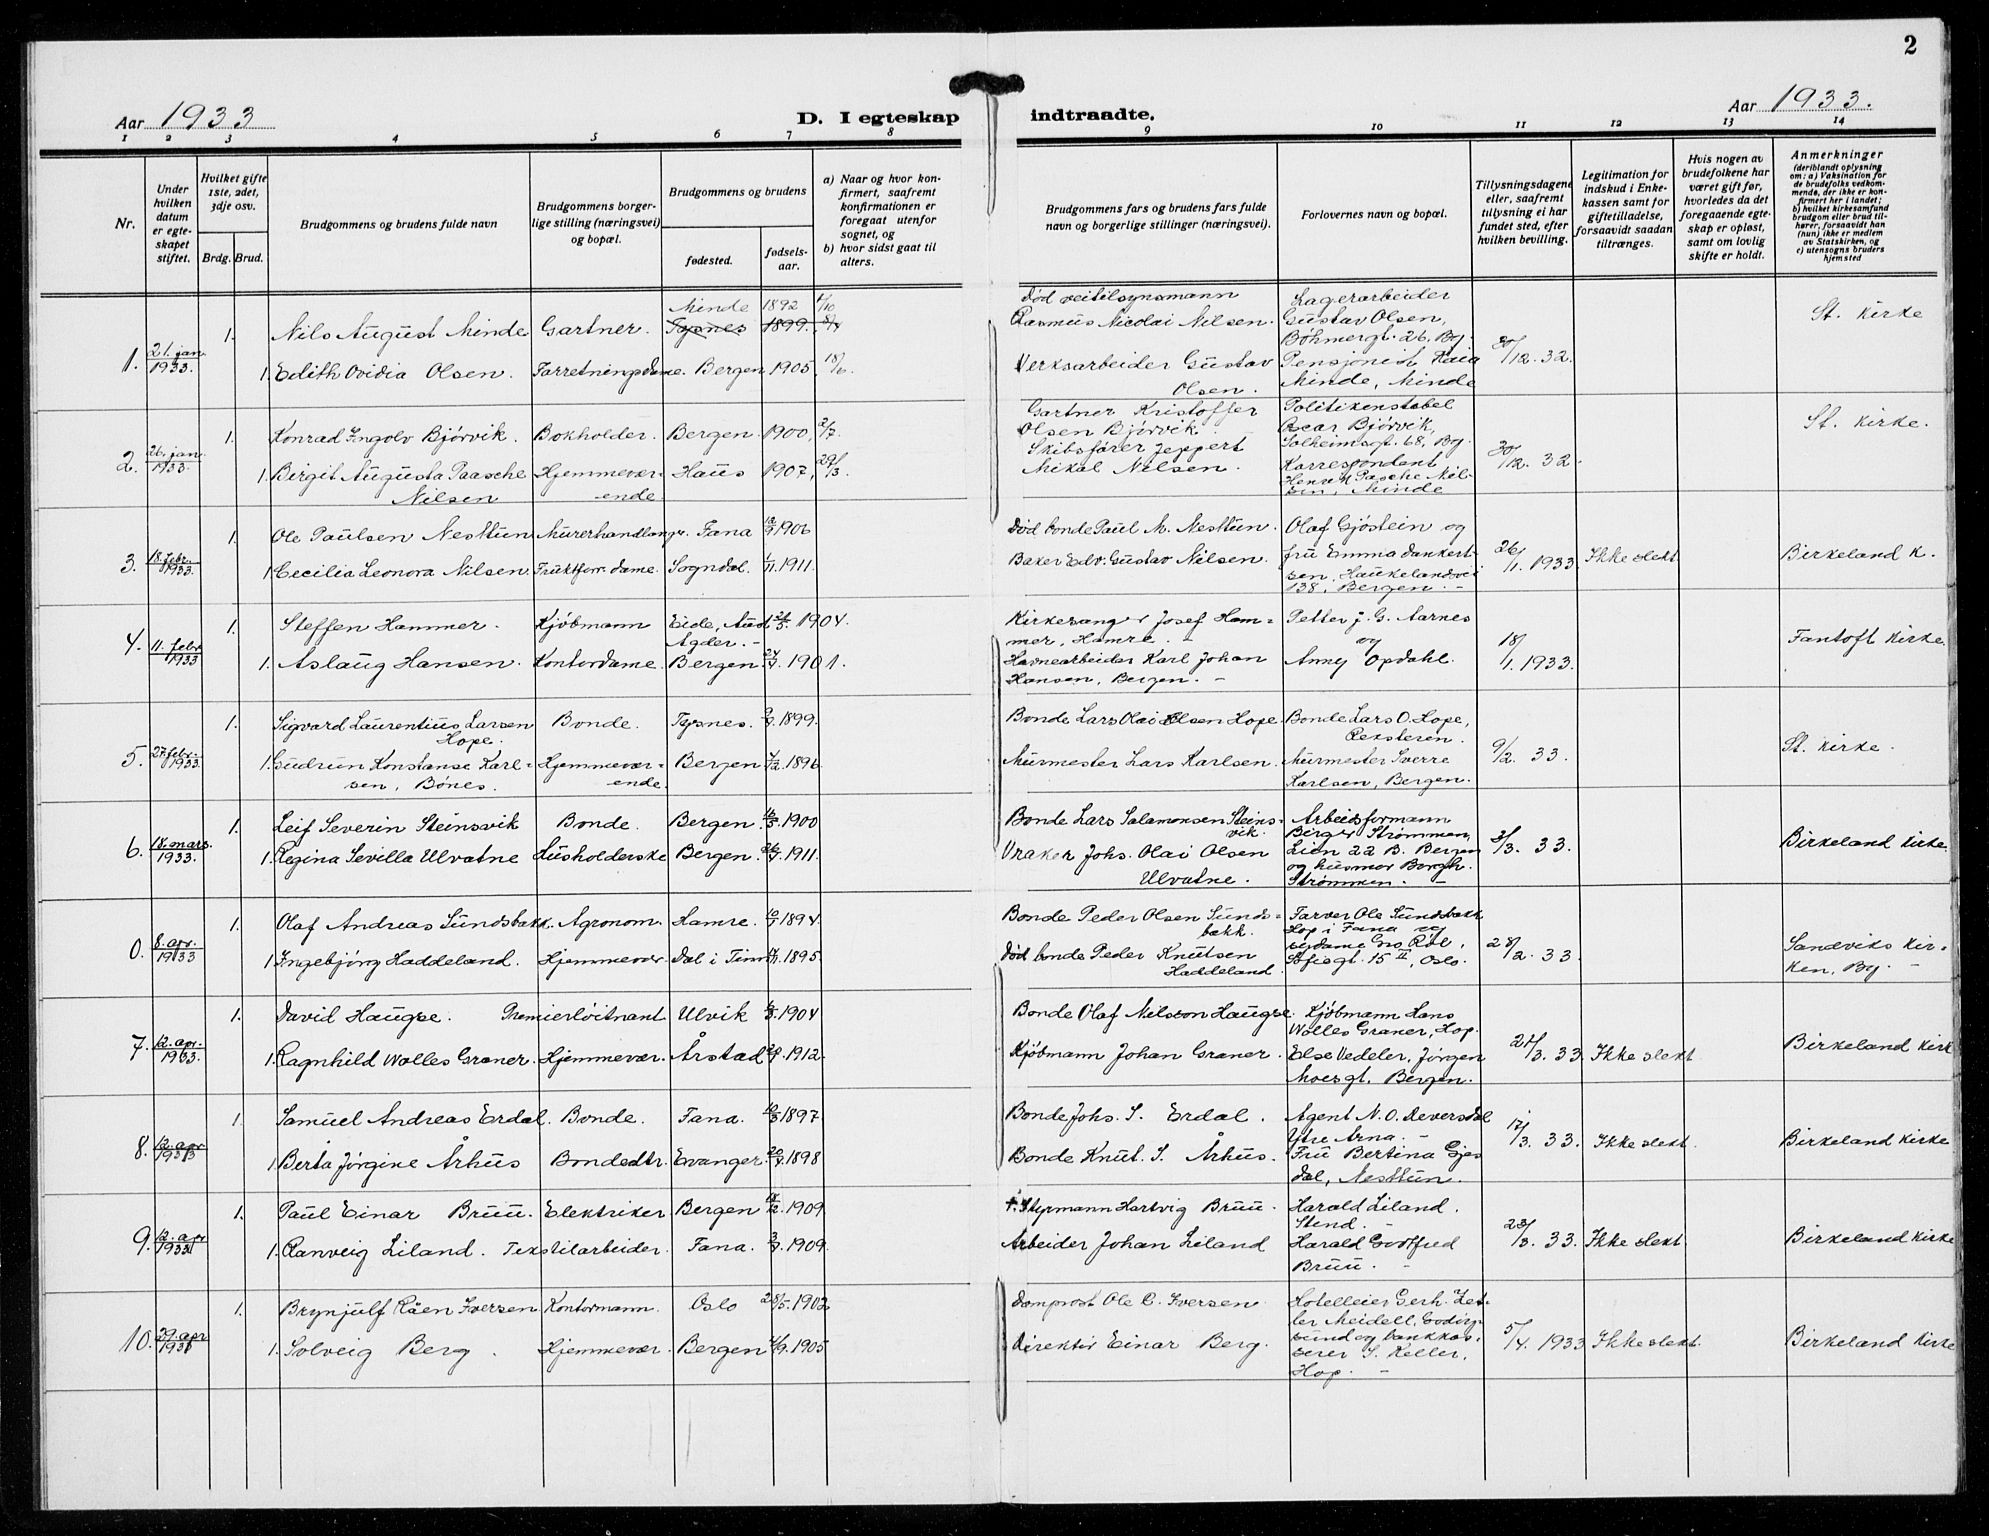 2
Aar 1933
D. I egteskap indtraadte.
Aar 1933.
1 2 3 4 5 6 7 8 9 10 11 12 13 14
Nr.
Under hvilken datum er egteskapet stiftet.
Hvilket gifte 1ste, 2det, 3dje osv.
Brdg. Brud.
Brudgommens og brudens fulde navn
Brudgommens borgerlige stilling (næringsvei) og bopæl.
Brudgommens og brudens
fødested.
fødselsaar.
a) Naar og hvor konfirmert, saafremt konfirmationen er foregaat utenfor sognet, og
b) hvor sidst gaat til alters.
Brudgommens fars og brudens fars fulde navn og borgerlige stillinger (næringsvei).
Forlovernes navn og bopæl.
Tillysningsdagene eller, saafremt tillysning ei har fundet sted, efter hvilken bevilling.
Legitimation for indskud i Enkekassen samt for giftetilladelse, forsaavidt saadan tiltrænges.
Hvis nogen av brudefolkene har været gift før, hvorledes da det foregaaende egteskap er opløst, samt om lovlig skifte er holdt.
Anmerkninger
(deriblandt oplysning om: a) Vaksination for de brudefolks vedkommende, der ikke er konfirmert her i landet; b) hvilket kirkesamfund brudgom eller brud tilhører, forsaavidt han (hun) ikke er medlem av Statskirken, og c) utensogns bruders hjemsted
1. 21. jan. 1933.
1. Nils August Minde Gartner. Minde 1892
Tysnes 1899.
1. Edith Ovidia Olsen. Forretningsdame. Bergen 1905, 18/6
Død veitilsynsmann
Rasmus Nicolai Nilsen.
Verksarbeider Gustav
Olsen.
Lagerarbeider
Gustav Olsen,
Böhmergt. 26, By.
Pensjonist Kaia
Minde, Minde
30/12. 32.
St. Kirke
2. 26. jan. 1933.
1. Konrad Ingolv Bjórvik. Bokholder. Bergen. 1900, 2/7.
1. Birgit Augusta Paasche
Nilsen
Hjemmeværende Haus 1907, 29/3.
Gartner Kristoffer
Olsen Bjórvik.
Skibsförer Jeppert
Mikal Nilsen.
Politikonstabel
Oscar Bjórvik,
Solheimsgt. 68, By.
Korrespondent
Pasche Nilsen, Minde
30/12. 32.
St. Kirke.
3. 18. febr. 1933.
1. Ole Paulsen Nesttun Murerhandlangr. Fana 1906
1. Cecilia Leonora Nilsen. Fruktforr. dame. Sogndal. 1/11. 1911.
Død bonde Paul M. Nesttun.
Baker Edv. Gustav Nilsen.
Olaf Gjóstein og
fru Emma Dankertsen, Haukelandsvei
138, Bergen. -
26/1. 1933.
Ikke slekt
Birkeland k.
4. 11. febr. 1933
1. Steffen Hammer. Kjöbmann Eide, Aust
Agder. - 1904.
1. Aslaug Hansen. Kontordame. Bergen 1901.
Kirkesanger Josef Hammer, Hamre. -
Havnearbeider Karl Johan
Hansen, Bergen. -
Petter J. G. Aarnes
og
Anny Opdahl.
18/1. 1933.
Fantoft Kirke.
5. 27. febr. 1933.
1. Sigvard Laurentius Larsen
Hope.
Bonde. Tysnes. 1899.
1. Gudrun Konstanse Karlsen, Bónes.
Hjemmeværende. Bergen 1896.
Bonde Lars Olai Olsen Hope
Murmester Lars Karlsen.
Bonde Lars O. Hope,
Reksteren.
Murmester Sverre
Karlsen, Bergen.
9/2. 33.
St. Kirke.
6. 18. mars. 1933.
1. Leif Severin Steinsvik Bonde. Bergen. 1900
1. Regina Sevilla Ulvatne Husholderske Bergen. 1911.
Bonde Lars Salamonsen Steinsvik.
Vraker Johs. Olai Olsen
Ulvatne.
Arbeidsformann
Birger Strömmen,
Lien 22 B. Bergen
og husmor Borgh.
Strömmen. -
3/3. 33.
Birkeland Kirke.
0. 8. apr. 1933
1. Olaf Andreas Sundsbakk. Agronom. Hamre. 1894.
1. Ingebjórg Haddeland. Hjemmevær. 1895.
Bonde Peder Olsen Sundsbakk.
Død bonde Peder Knutsen
Haddeland.
Farver Ole Sundsbakk
Hop i Fana og
Sofiesgt. 15 II, Oslo.
28/2. 33.
Sandviks kirken, By. -
7. 12. apr. 1933.
1. David Haugse. Premierlöitnant Ulvik 1904
1. Ragnhild Wolles Graner. Hjemmevær. Årstad 1912.
Bonde Olaf Nilsson Haugse.
Kjöbmann Johan Graner.
Kjöbmann Hans
Wolles Graner, Hop.
Else Vedeler, Jörgen
Moesgt. Bergen.
21/3. 33.
Ikke slekt
Birkeland Kirk
8. 12. apr. 1933
1. Samuel Andreas Erdal. Bonde. Fana. 1897
1. Berta Jörgine Århus Bondedtr. Evanger. 1898
Bonde Johs. S. Erdal.
Bonde Knut. S. Århus.
Agent N. O. Reversdal
Ytre Arna. -
Fru Bertina Gjesdal, Nesttun.
17/3. 33.
Ikke slekt.
Birkeland Kirke
9. 12. apr. 1933
1. Paul Einar Bruu. Elektriker Bergen 1909
1. Ranveig Liland. Tekstilarbeider. Fana. 1909.
Styrmann Hartvig Bruu.
Arbeider Johan Liland
Harald Liland.
Stend. -
Harald Gottfred
Bruu. -
23/3. 33.
Ikke slekt.
Birkeland Kirke
10. 29. apr 1933
1. Brynjulf Råen Iversen Kontormann. Oslo 28/5. 1902
1. Solveig Berg. Hjemmevær. Bergen 1905
Domprost Ole C. Iversen
Direktör Einar Berg.
Hotelleier Gerh. Zetler Meidell, Godöysund og bankkasserer S. Keller,
Hop. -
5/4. 1933
Ikke slekt.
Birkeland Kirke